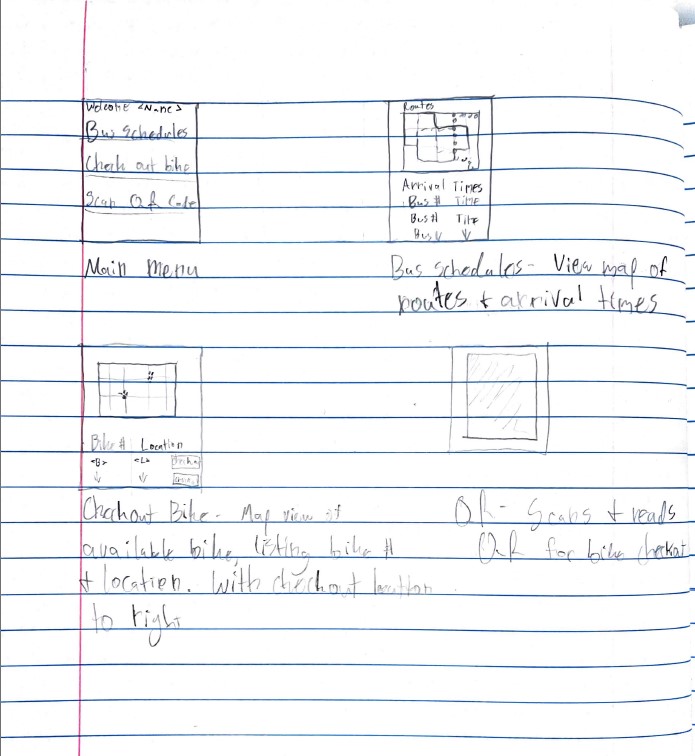 Welcome <Name>
Bus schedules
Check out bike
Scan QR Code
Main menu
Routes
Arrival Times
Bus # Time
Bus # Time
Bus
Bus schedules - View map of
routes + arrival times
Bike # Location
<B> <L> Checkout
Checkout Bike - Map view of
available bike, listing bike #
+ location. With checkout location
to right
QR - Scans + reads
QR for bike checkout